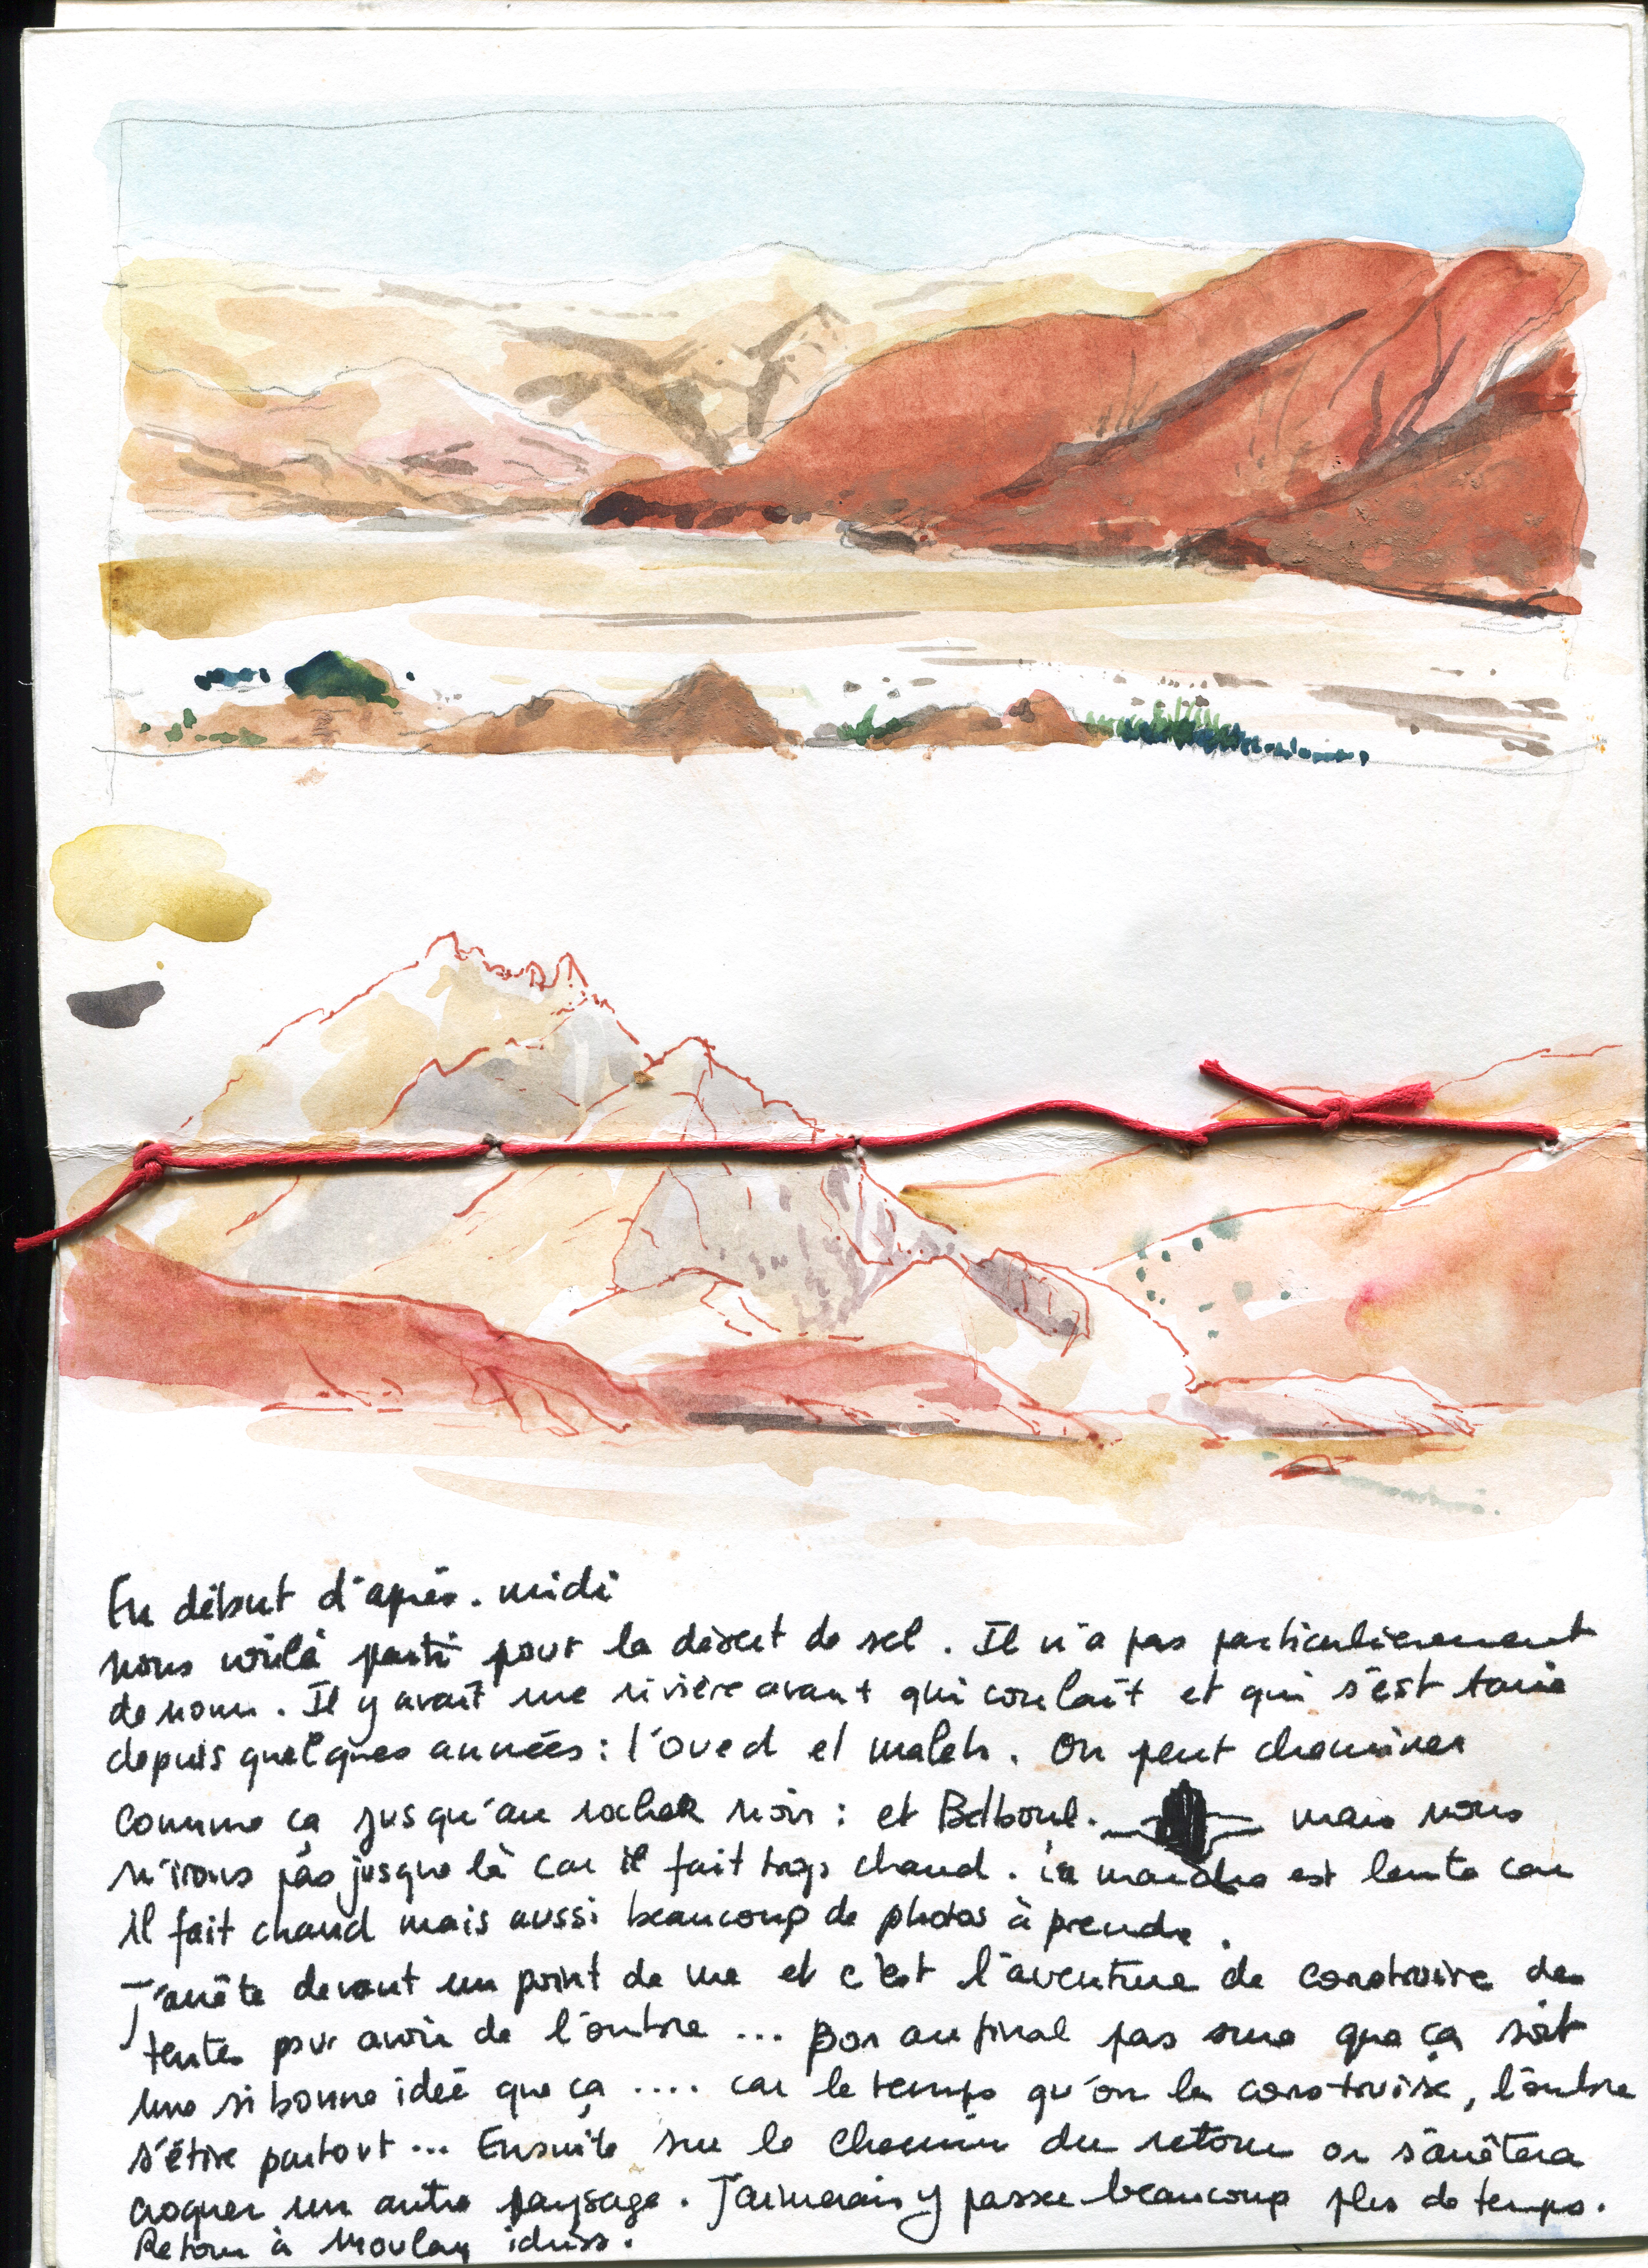 En début d'après-midi
nous voilà parti pour le désert de sel. Il n'a pas particulièrement
de nom. Il y avait une rivière avant qui coulait et qui s'est tarie
depuis quelques années : l'oued el maleh. On peut cheminer
comme ça jusqu'au rocher noir : et Belboul. mais nous
n'irons pas jusque là car il fait trop chaud. La marche est lente car
il fait chaud mais aussi beaucoup de photos à prendre.
J'arrête devant un point de vue et c'est l'aventure de construire des
tentes pour avoir de l'ombre ... bon au final pas sure que ça soit
une si bonne idée que ça .... car le temps qu'on la construise, l'ombre
s'étire partout ... Ensuite sur le chemin du retour on s'arrêtera
croquer un autre paysage. J'aimerais y passer beaucoup plus de temps.
Retour à Moulay idriss.